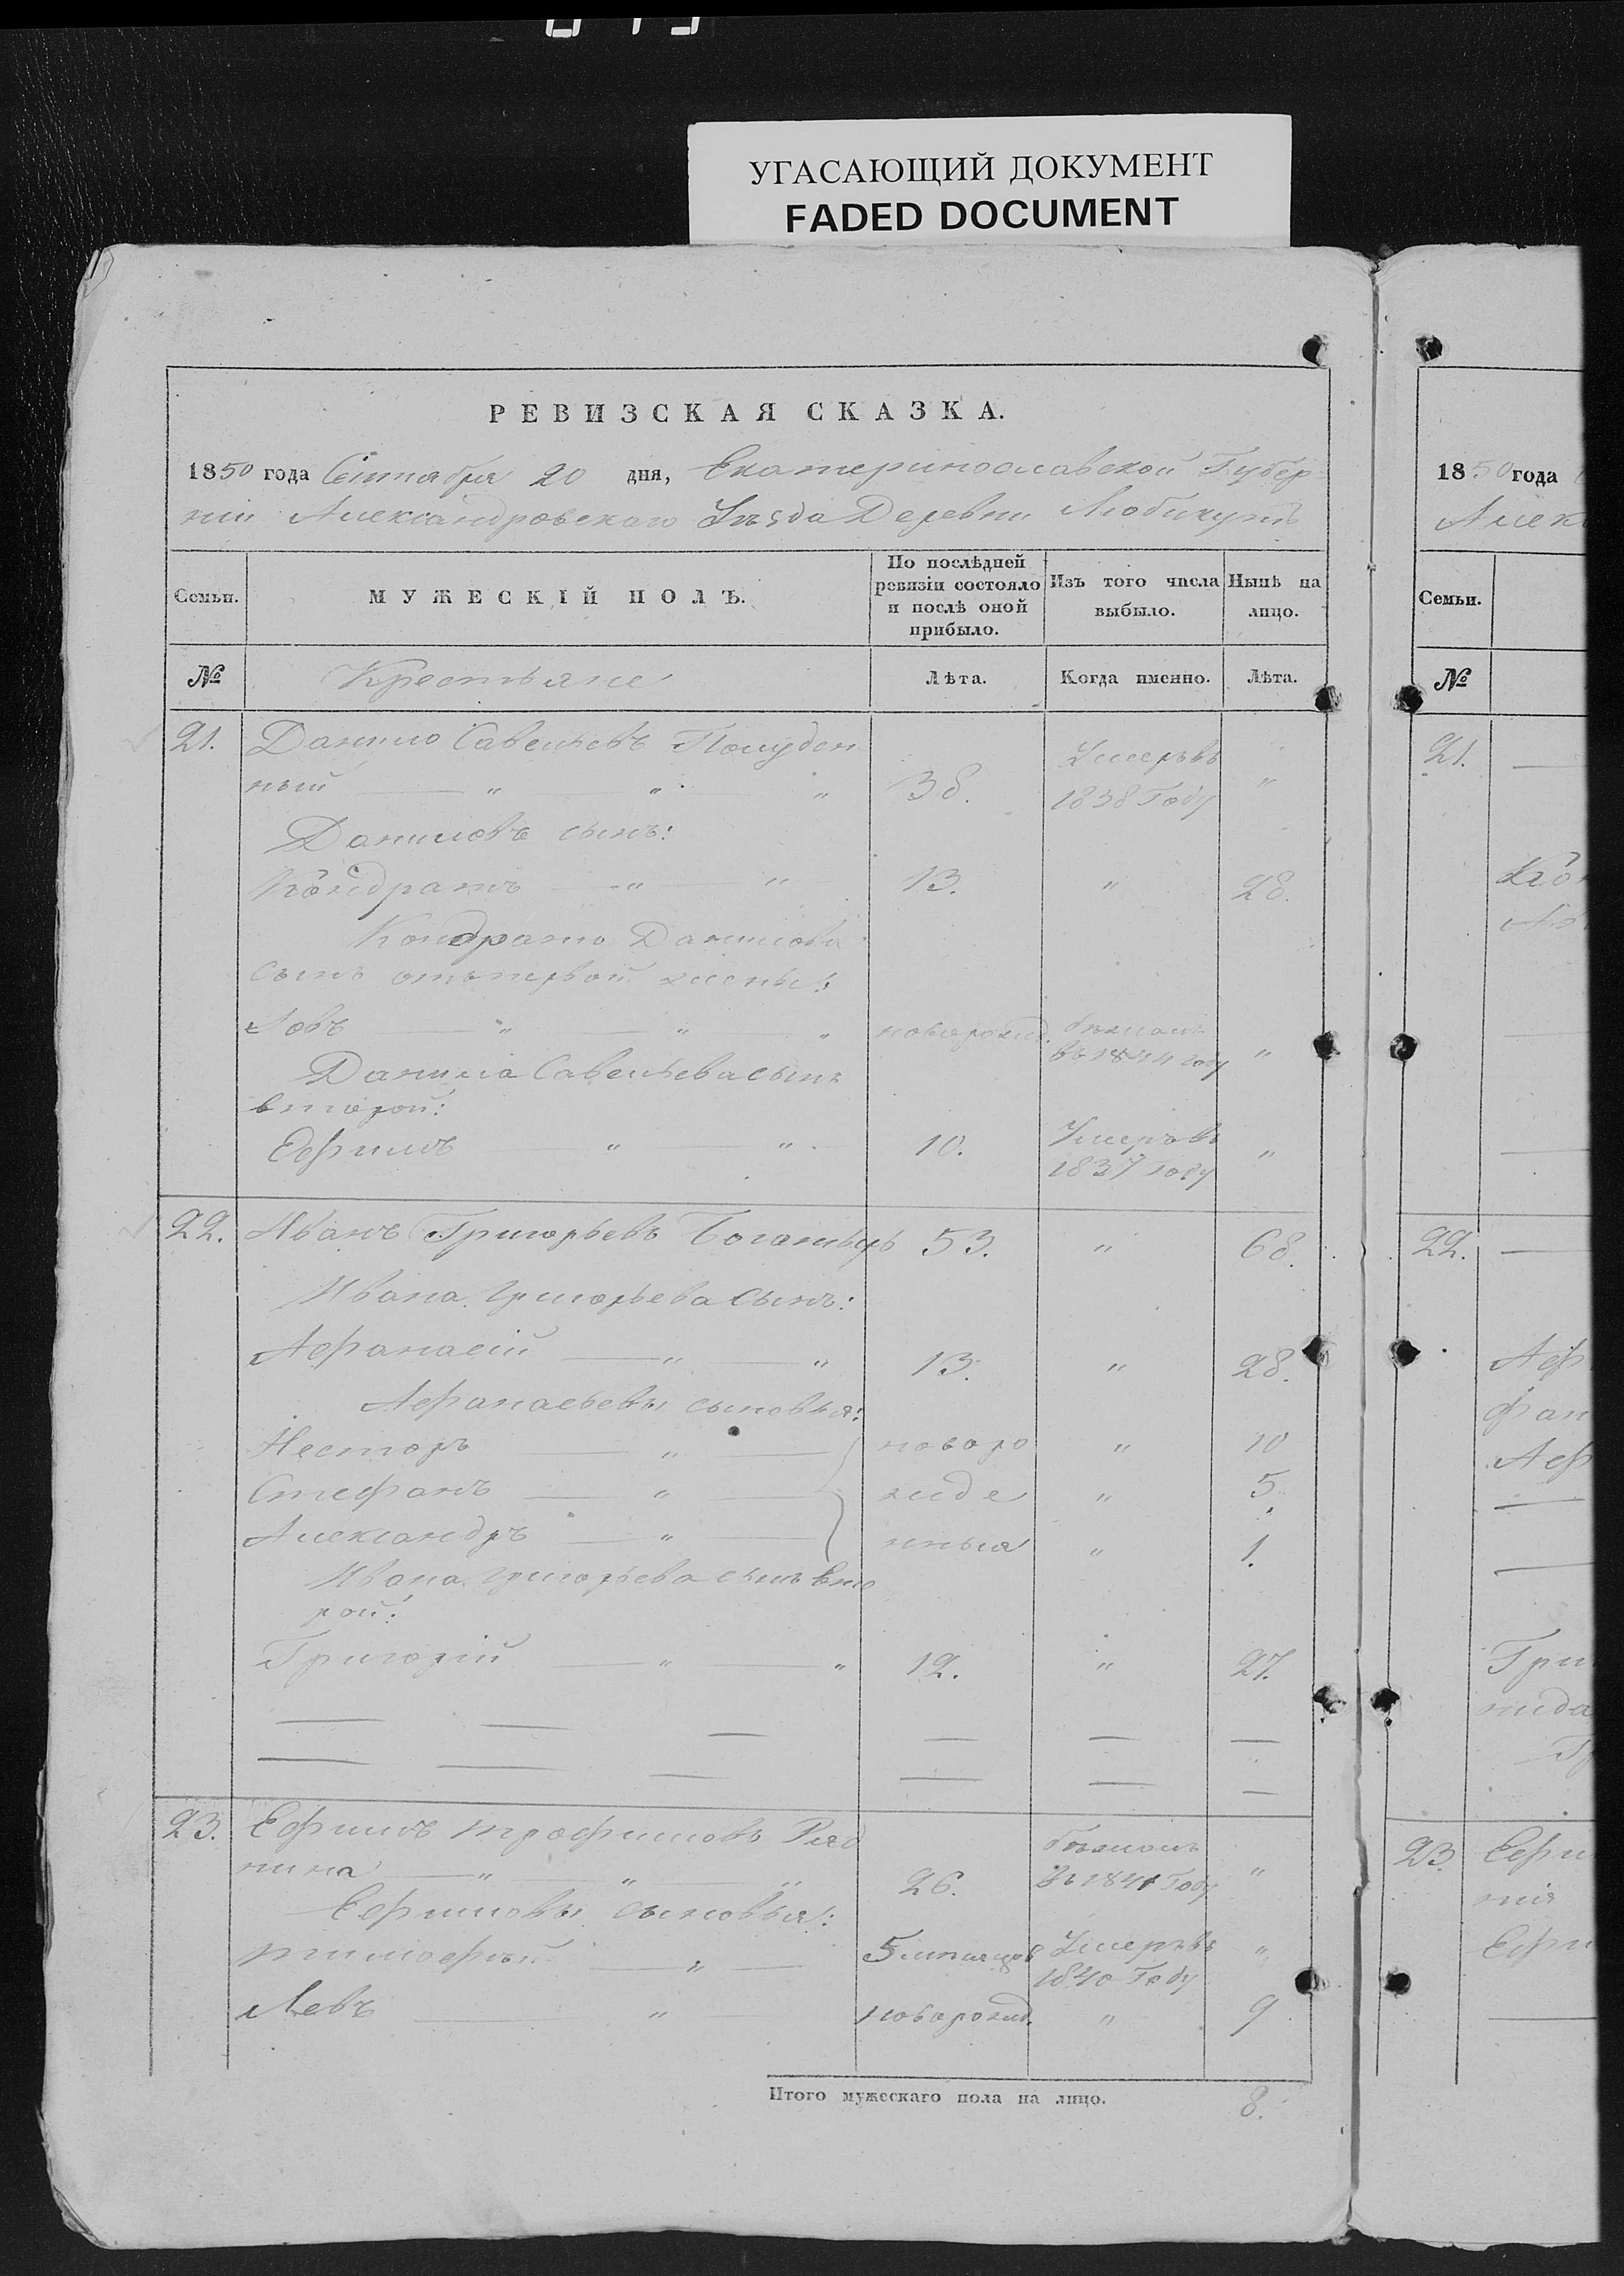 УГАСАЮЩИЙ ДОКУМЕНТ
FADED DOCUMENT
РЕВИЗСКАЯ СКАЗКА.
1850 года Сентября 20 дня, Екатеринославской Губер
ніи Александровскаго Уѣзда Деревни
Семьи. МУЖЕСКІЙ ПОЛЪ. По послѣдней ревизіи состояло и послѣ оной прибыло. Изъ того числа выбыло. Нынѣ на лицо.
№ Крестьяне Лѣта. Когда именно. Лѣта.
21. Данило Савельевъ Полуден
ный — " — " " 38. Умеръ въ 1838 Году "
Даниловъ сынъ:
Кондратъ — " — " 13. " 28.
Кондрата Данилова
сынъ отъ первой жены:
Іовъ — " — " — " новорожд. бѣжалъ въ 1844 году "
Данила Савельева сынъ
второй:
Ефимъ — " — " 10. Умеръ въ 1837 году "
22. Иванъ Григорьевъ 53. " 68.
Ивана Григорьева сынъ:
Афанасій — " — " 13. " 28.
Афанасьевы сыновья:
Несторъ — " — новоро " 10
Стефанъ — " — жде " 5.
Александръ — " — нныя " 1.
Ивана Григорьева сынъ вто
рой:
Григорій — " — " 12. " 27.
23. Ефимъ Трофимовъ Ряд
нина — " — " " 26. бѣжалъ въ 1841 Году "
Ефимовы сыновья:
Тимофѣй — " — 5 мѣсяцов Умеръ въ 1840 Году "
Левъ — " — новорожд. " 9
Итого мужескаго пола на лицо. 8.
1850 года
Алек
Семьи.
№
21.
22.
Аф
фан
Аф
Гри
23. Ефи
Ефи